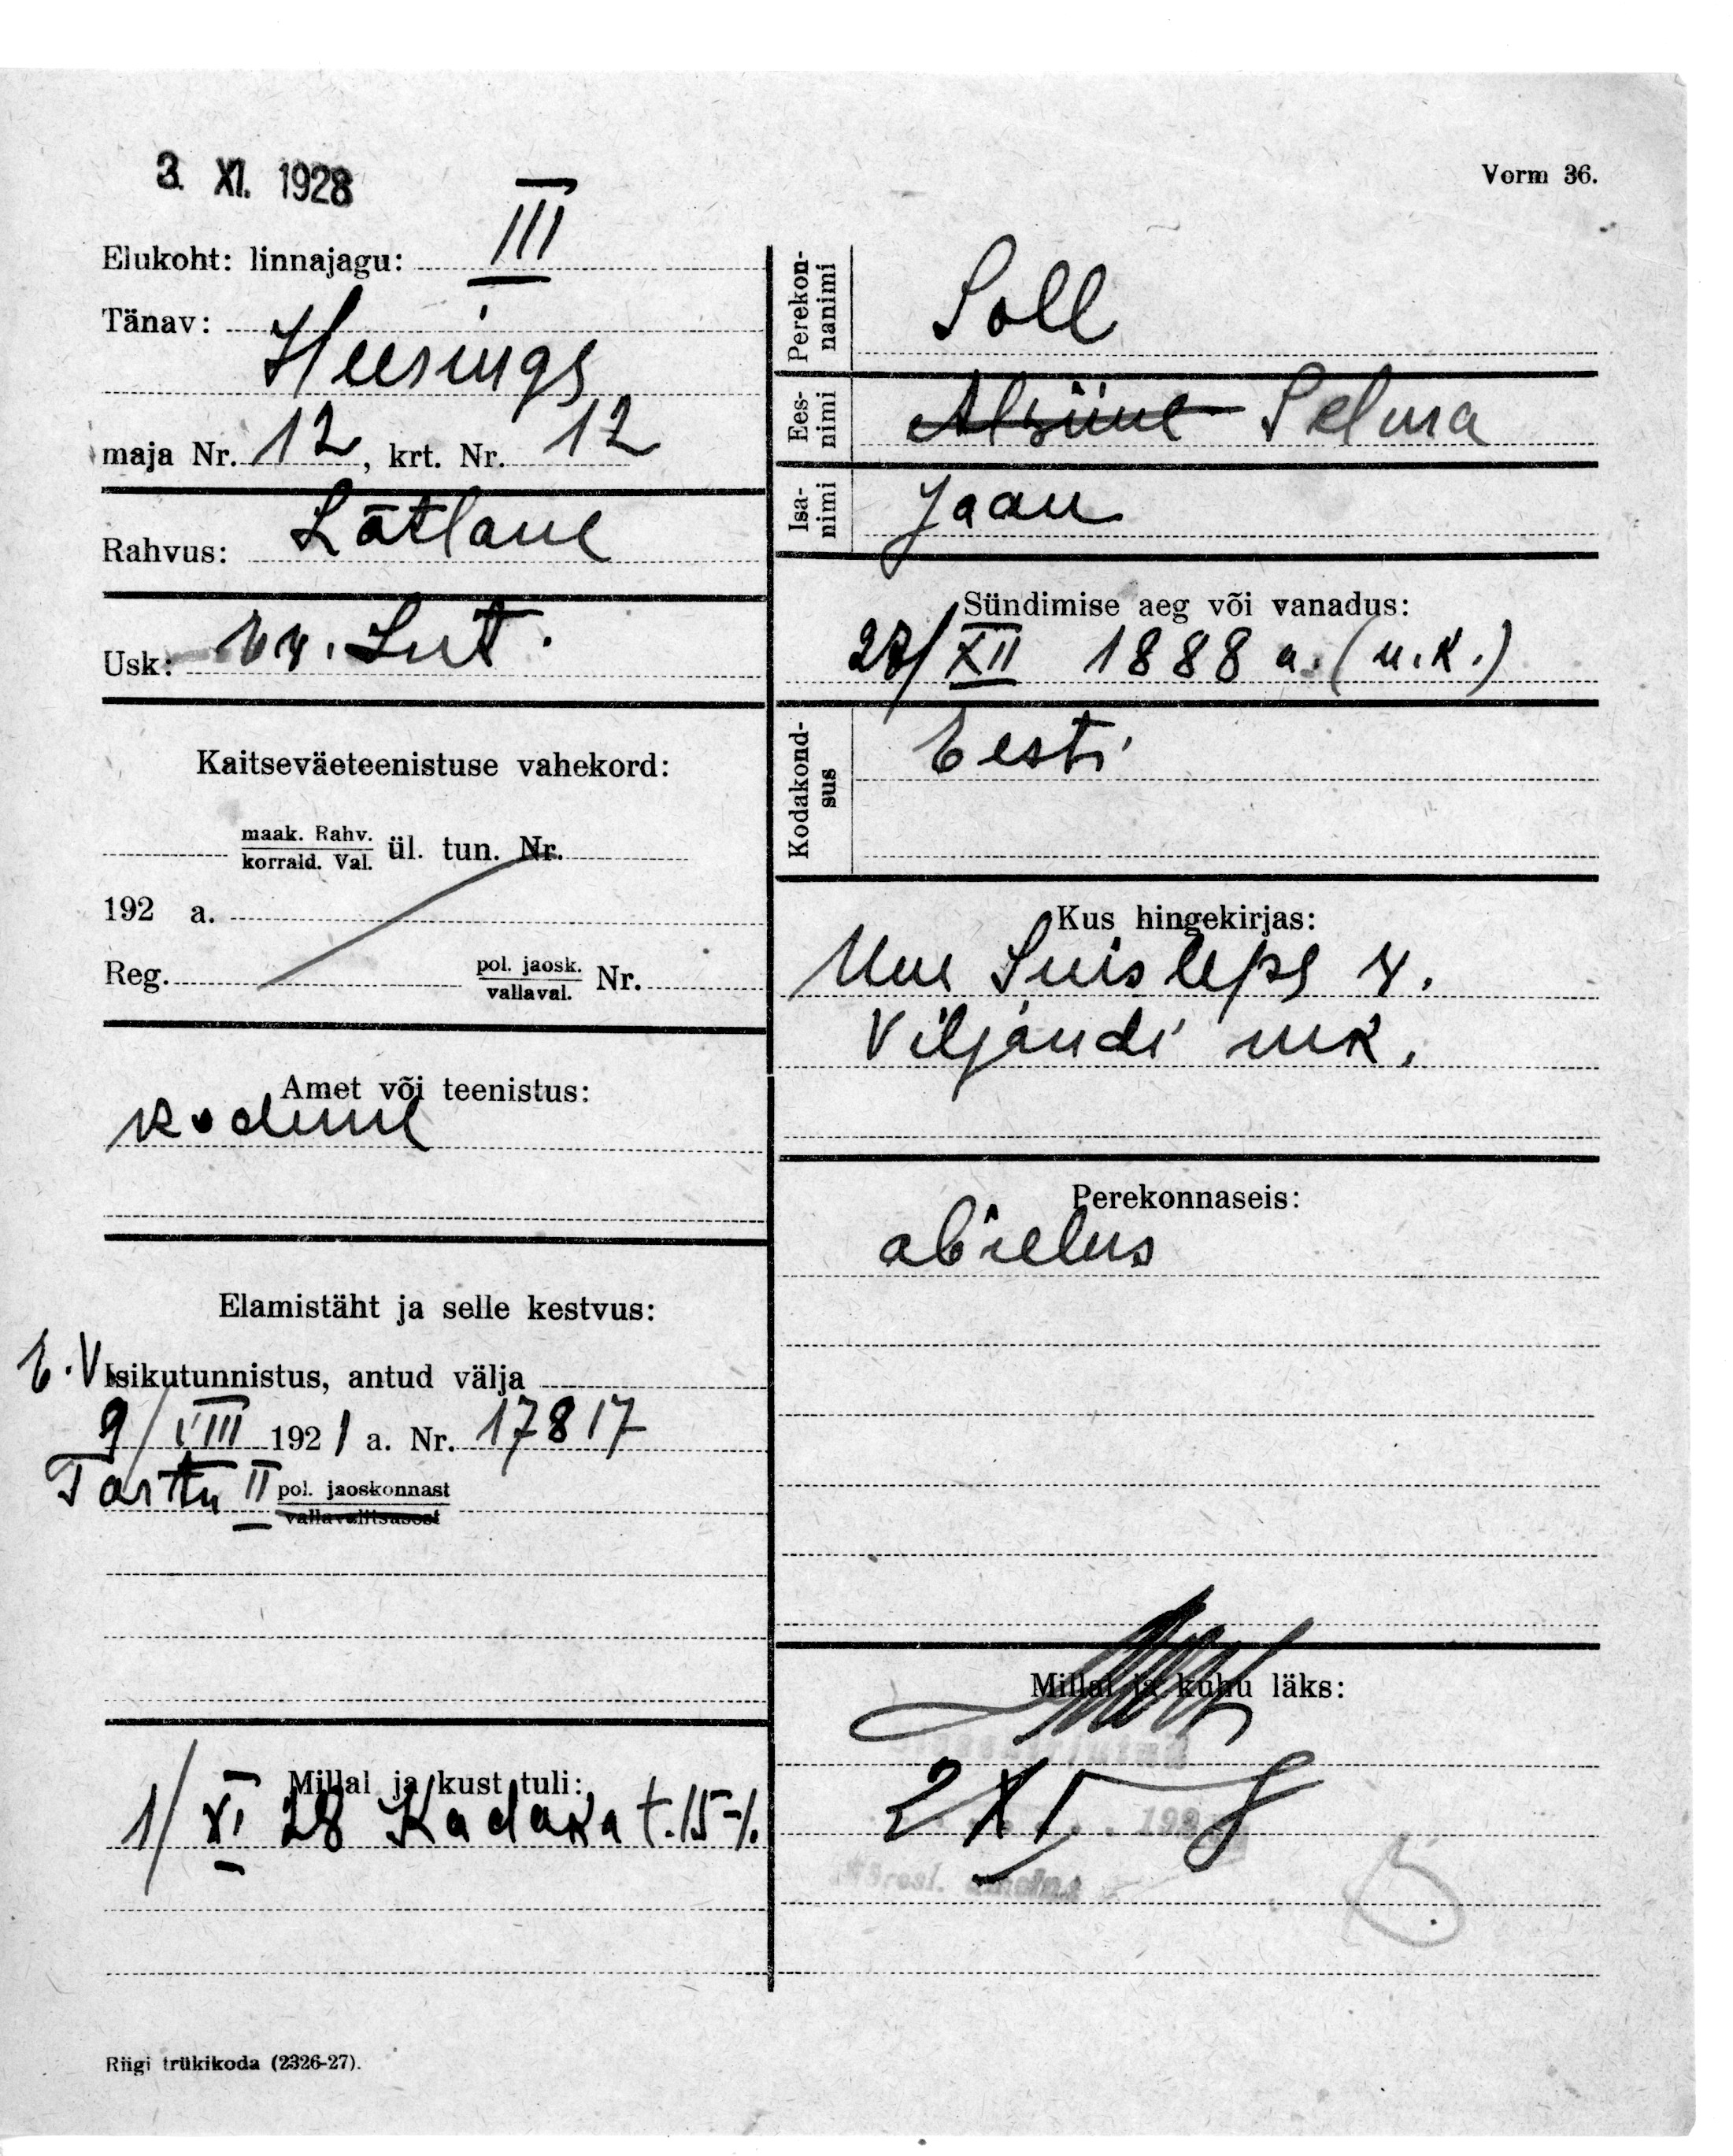 3. XI. 1928
Vorm 36.
Elukoht: linnajagu: III
Tänav:
Heeringa
maja Nr. 12, krt. Nr. 12
Rahvus: Lätlane
Usk: Ev. Lut.
Kaitseväeteenistuse vahekord:
maak. Rahv.
korrald. Val. ül. tun. Nr.
192 a.
Reg. pol. jaosk.
vallaval. Nr.
Amet või teenistus:
kodune
Elamistäht ja selle kestvus:
E.V. Isikutunnistus, antud välja
9/VIII 1921 a. Nr. 17817
Tartu II pol. jaoskonnast
vallavalitsusest
Millal ja kust tuli:
1/XI 28 Kadaka t. 15-1.
Perekon-
nanimi
Soll
Ees-
nimi
Selma
Isa-
nimi
Jaan
Sündimise aeg või vanadus:
XII 1888 a. (u.k.)
Kodakond-
sus
Eesti
Kus hingekirjas:
Uue Suislepa v.
Viljandi mk.
Perekonnaseis:
abielus
Millal ja kuhu läks:
2 XI
Riigi trükikoda (2326-27).